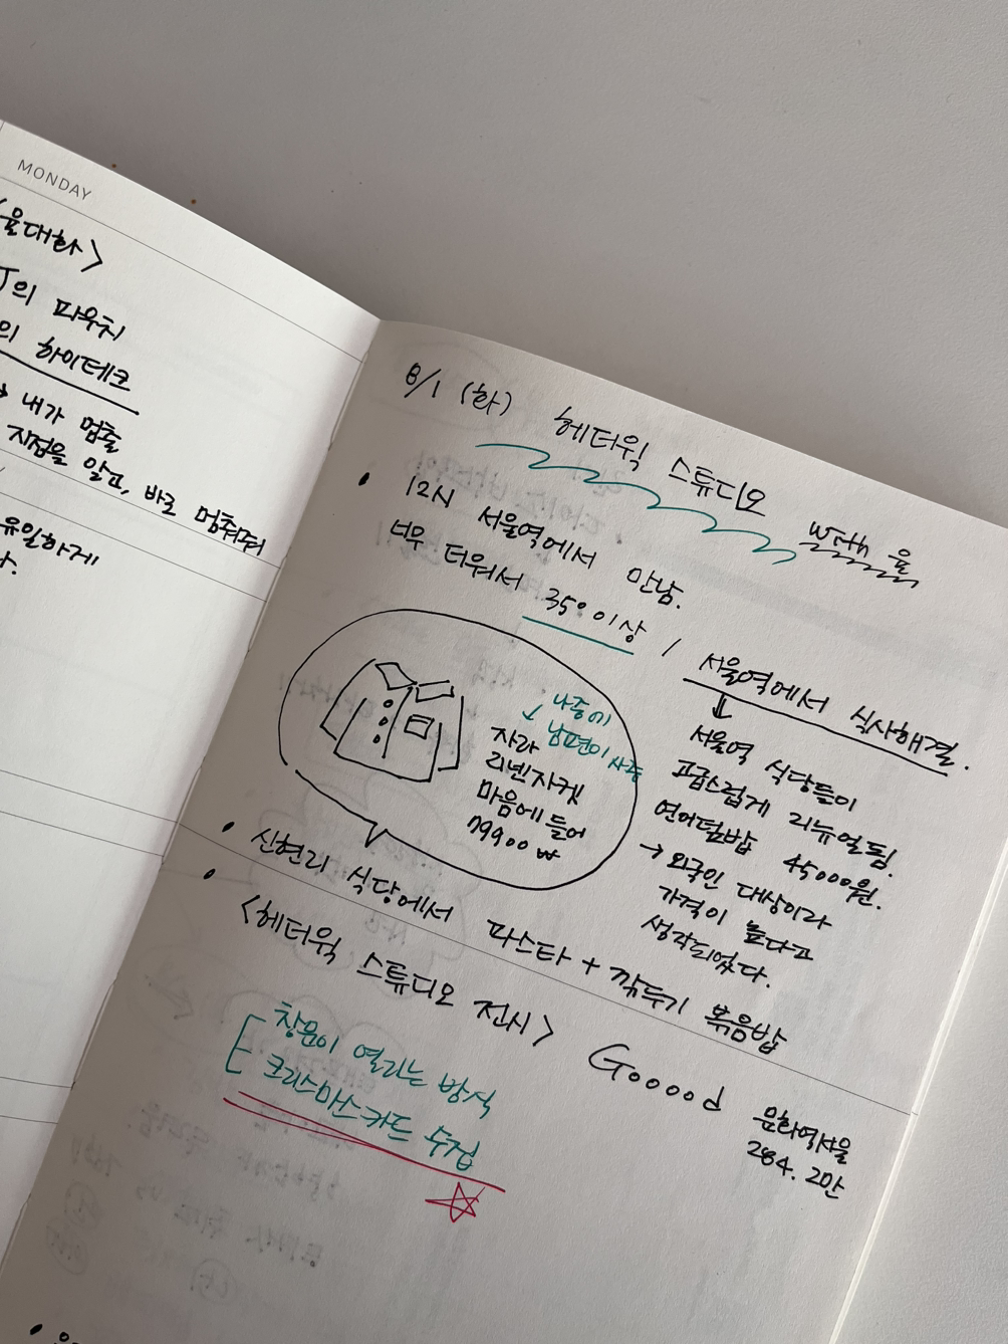 MONDAY
<율대화>
의 파우치
의 하이테크
→ 내가 멈출
지점을 알고, 바로 멈춰줘
유일하게
다.
8/1 (화) 헤더윅 스튜디오 with 율
• 12시 서울역에서 만남.
너무 더워서 35° 이상 / 서울역에서 식사해결.
↓
서울역 식당들이
고급스럽게 리뉴얼됨.
연어덮밥 45000원.
→ 외국인 대상이라
가격이 높다고
생각되었다.
나중에
↓ 남편이 사줌
자라
리넨자켓
마음에 들어
79900₩
• 신현리 식당에서 파스타 + 깍두기 볶음밥
• <헤더윅 스튜디오 전시> Gooood
문화역서울
284. 2만
[ 창문이 열리는 방식
크리스마스카드 수집
☆